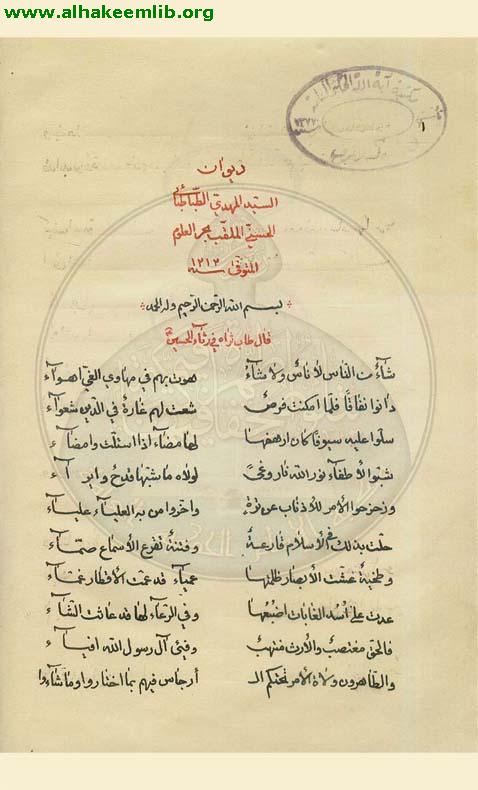 www.alhakeemlib.org
مكتبة آية الله
١
ديوان
السيد المهدي الطباطبائي
الحسني الملقب ببحر العلوم
المتوفى سنه ١٢١٢
بسم الله الرحمن الرحيم وله الحمد
قال طاب ثراه في رثاء الحسين
شاءت الناس لا ناس ولا شاءُ هوت بهم في مهاوي الغي اهواء
دانوا نفاقًا فلما امكنت فرص شنت لهم غارة في الدين شعواء
سلوا عليه سيوفًا كان ارهفها لها مضاء اذا استلت وامضاء
شبوا لاطفاء نور الله نار وغىً لولاه ما شبها قدح وايراء
وزحزحوا الامر للاذناب عن ترة واخروا من به العلياء علياء
حلت بذلك في الاسلام قارعة وفتنة تقرع الأسماع صماء
وطخية غشت الأبصار ظلمتها عمياء قد عمت الاقطار غماء
عدت على أسد الغابات اضبعها وفي الرعاء لها قد عاثت الشاء
فالحق مغتصب والأرث منتهب وفيئ آل رسول الله افياء
والطاهرون ولاة الأمر تحكم الـ أرجاس فيهم بما اختاروا وما شاؤا